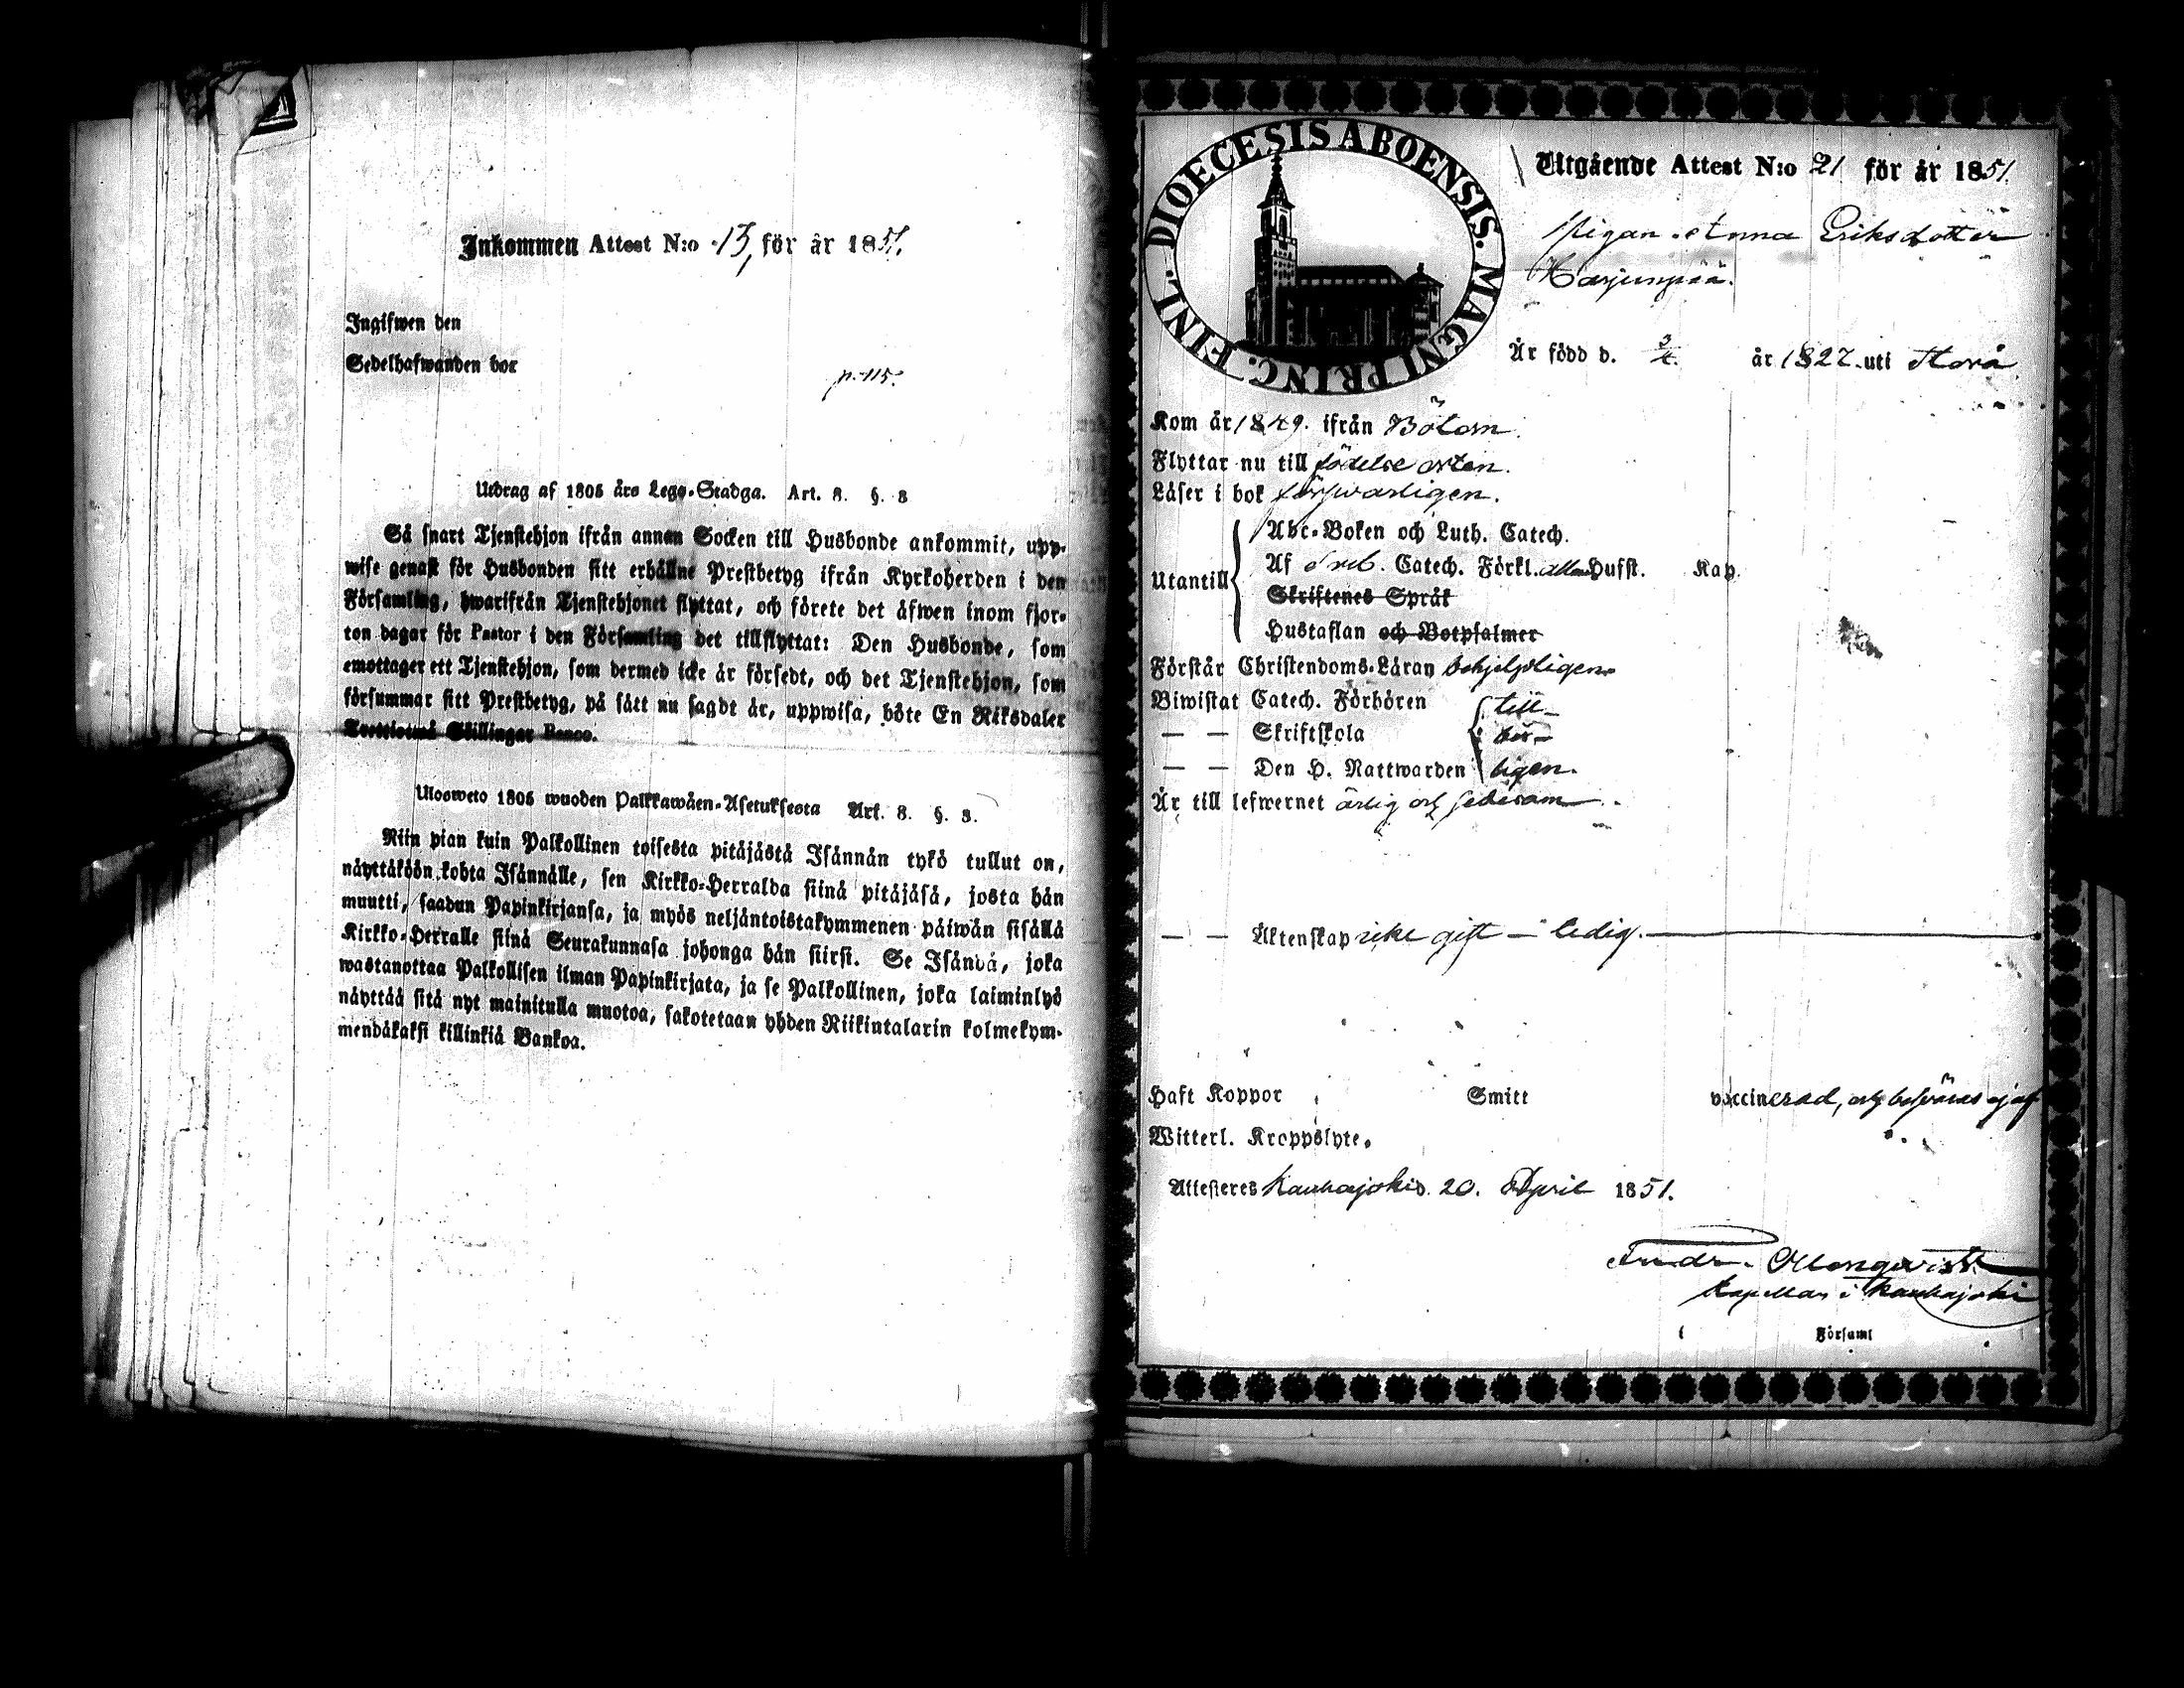 Inkommen Attest N:o 13, för år 1851.
Ingifwen den
Sedelhafwanden bor
p. 115.
Utdrag af 1805 års Lego-Stadga. Art. 8. §. 8
Så snart Tjenstehjon ifrån annan Socken till Husbonde ankommit, upp-
wise genast för Husbonden sitt erhållne Prestbetyg ifrån Kyrkoherden i den
Församling, hwarifrån Tjenstehjonet flyttat, och förete det äfwen inom fjor-
ton dagar för Pastor i den Församling det tillflyttat: Den Husbonde, som
emottager ett Tjenstehjon, som dermed icke är försedt, och det Tjenstehjon, som
försummar sitt Prestbetyg, på sätt nu sagdt är, uppwisa, böte En Riksdaler
Trettiotwå Skillingar Banco.
Ulosweto 1805 wuoden Palkkawäen-Asetuksesta Art. 8. §. 8.
Niin pian kuin Palkollinen toisesta pitäjästä Isännän tykö tullut on,
näyttäköön kohta Isännälle, sen Kirkko-Herralda siinä pitäjäsä, josta hän
muutti, saadun Papinkirjansa, ja myös neljäntoistakymmenen päiwän sisällä
Kirkko-Herralle siinä Seurakunnasa johonga hän siirsi. Se Isändä, joka
wastanottaa Palkollisen ilman Papinkirjata, ja se Palkollinen, joka laiminlyö
näyttää sitä nyt mainitulla muotoa, sakotetaan yhden Riikintalarin kolmekym-
mendäkaksi killinkiä Bankoa.
DIOECESIS ABOENSIS. MAGNI PRINC. FINL.
Utgående Attest N:o 21 för år 1851.
Pigan Anna Eriksdotter
Harjunpää.
Är född d. år 1827. uti Storå
Kom år 1849. ifrån Bötom.
Flyttar nu till födelse orten.
Läser i bok försvarligen.
Utantill
Abc-Boken och Luth. Catech.
Af Sveb. Catech. Förkl. alla Hufst. Kap.
Skriftenes Språk
Hustaflan och Botpsalmer
Förstår Christendoms-Läran behjelpligen
Biwistat Catech. Förhören till-
— — Skriftskola bör-
— — Den H. Nattwarden ligen.
Är till lefwernet ärlig och sedesam.
— — Äktenskap icke gift – ledig.
Haft Koppor Smitt vaccinerad, och besväras ej af
Witterl. Kroppslyte.
Attesteres Kauhajoki d. 20. April 1851.
Andr.
Kapellan i Kauhajoki
i Församl